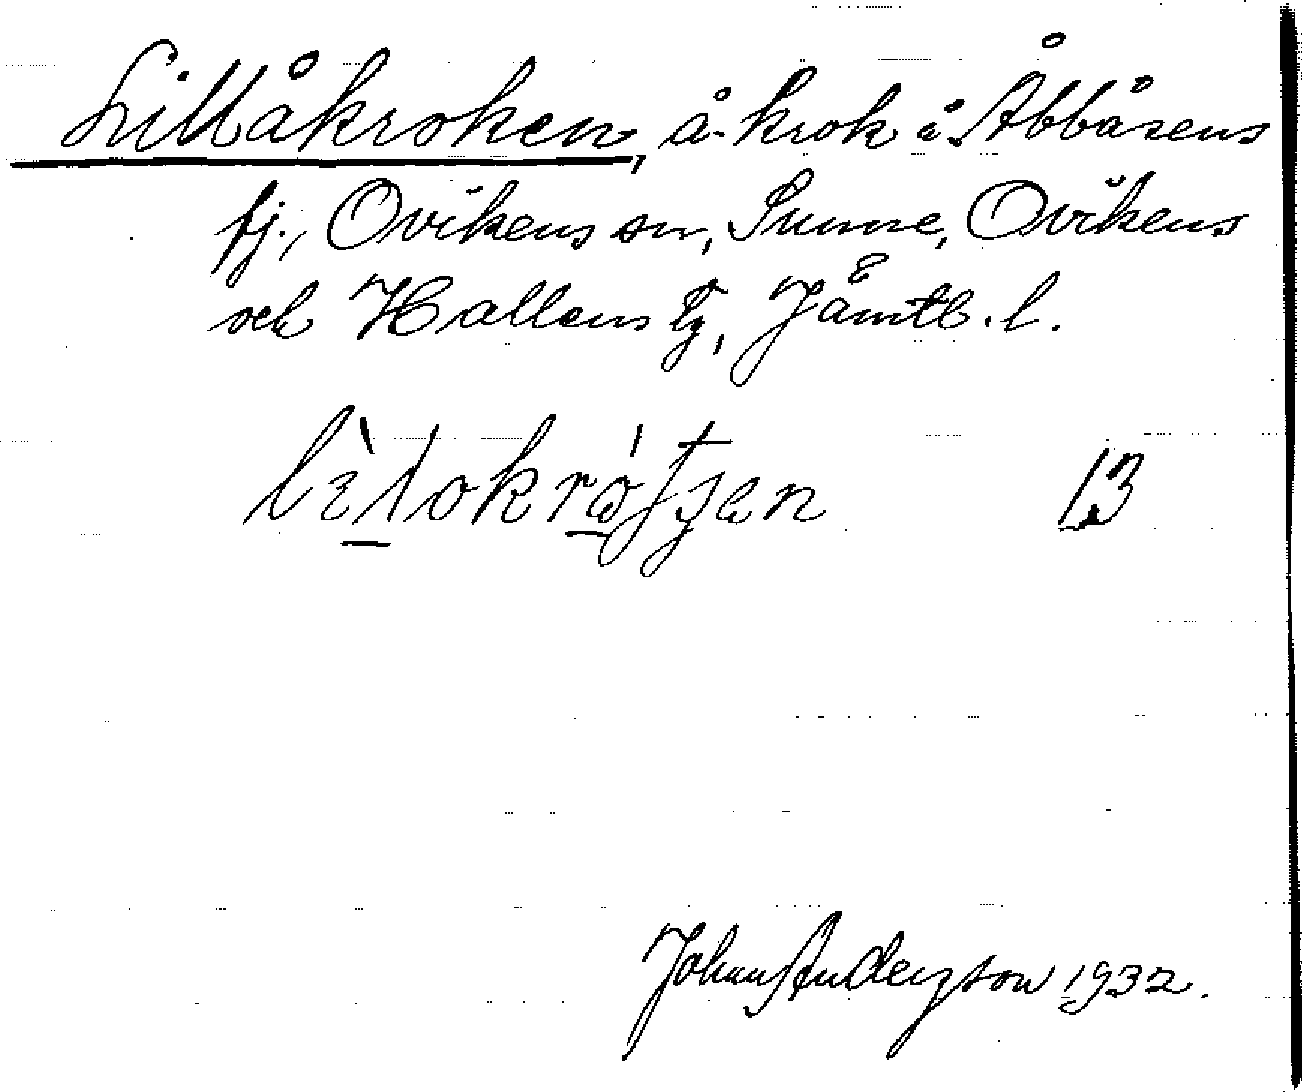 Lillåkroken, å-krok i Åbbåsens
fj., Ovikens sn, Sunne, Ovikens
och Hallens tg, Jämtl. l.
13
Johan Anderzson 1932.